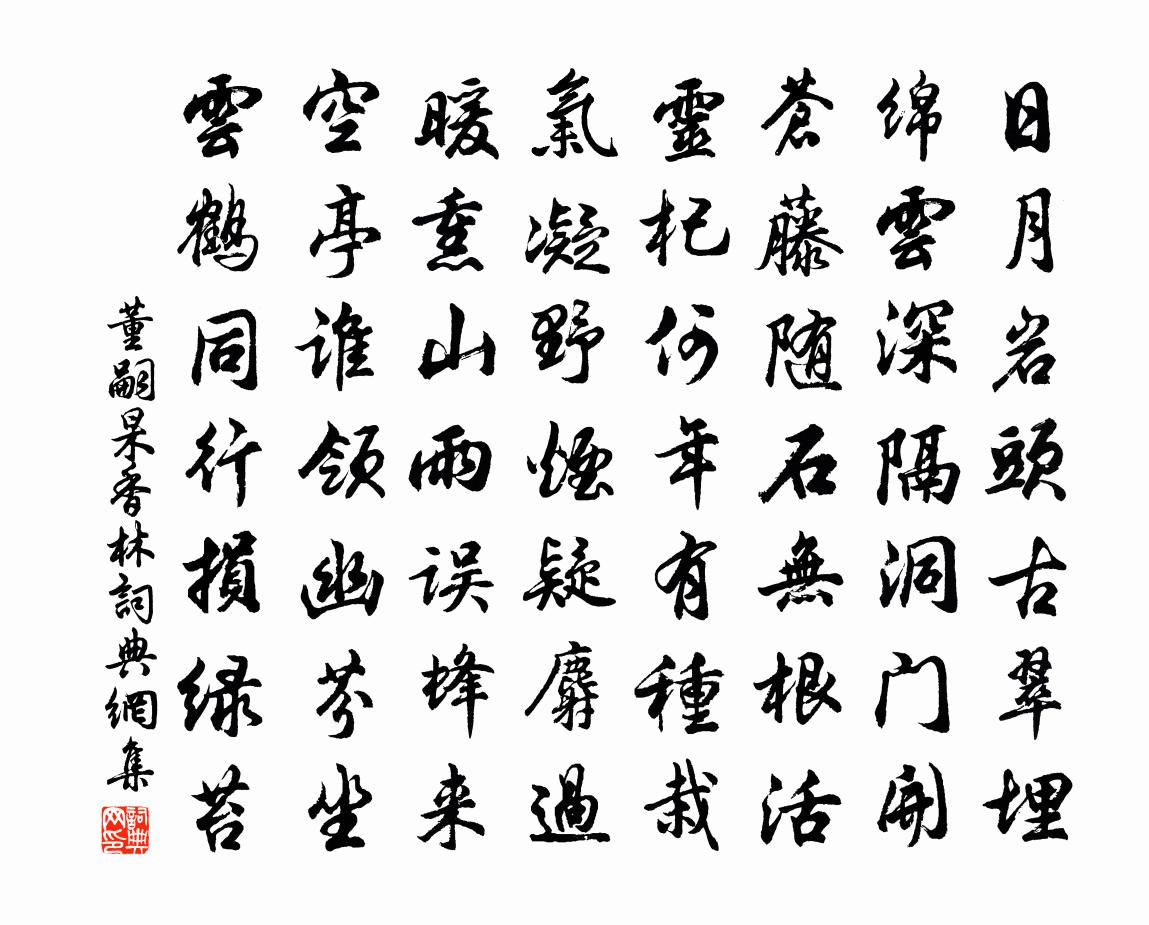 日月岩頭古翠埋
绵雲深隔洞门開
蒼藤随石無根活
靈杞何年有種栽
氣凝野煙疑麝過
暖熏山雨误蜂来
空亭谁領幽芬坐
雲鶴同行損绿苔
董嗣杲香林詞典網集
詞典网印